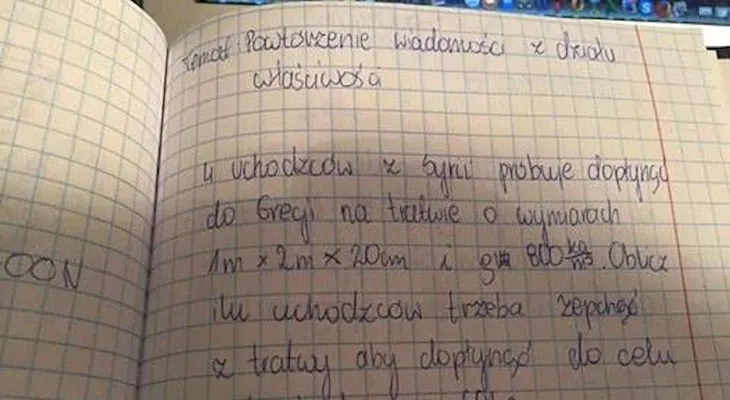 Temat: Powtórzenie wiadomości z działu
właściwości
4 uchodźców z Syrii próbuje dopłynąć
do Grecji na tratwie o wymiarach
1m × 2m × 20cm i g 800 kg/m³. Oblicz
ilu uchodźców trzeba zepchnąć
z tratwy aby dopłynąć do celu
OON